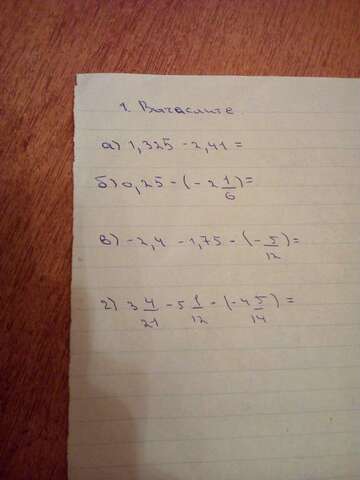 1. Вычаслите.
а) 1,325 - 2,41 =
б) 0,25 - (- 2 1/6) =
в) - 2,4 - 1,75 - (- 5/12) =
г) 3 4/21 - 5 1/12 - (- 4 5/14) =